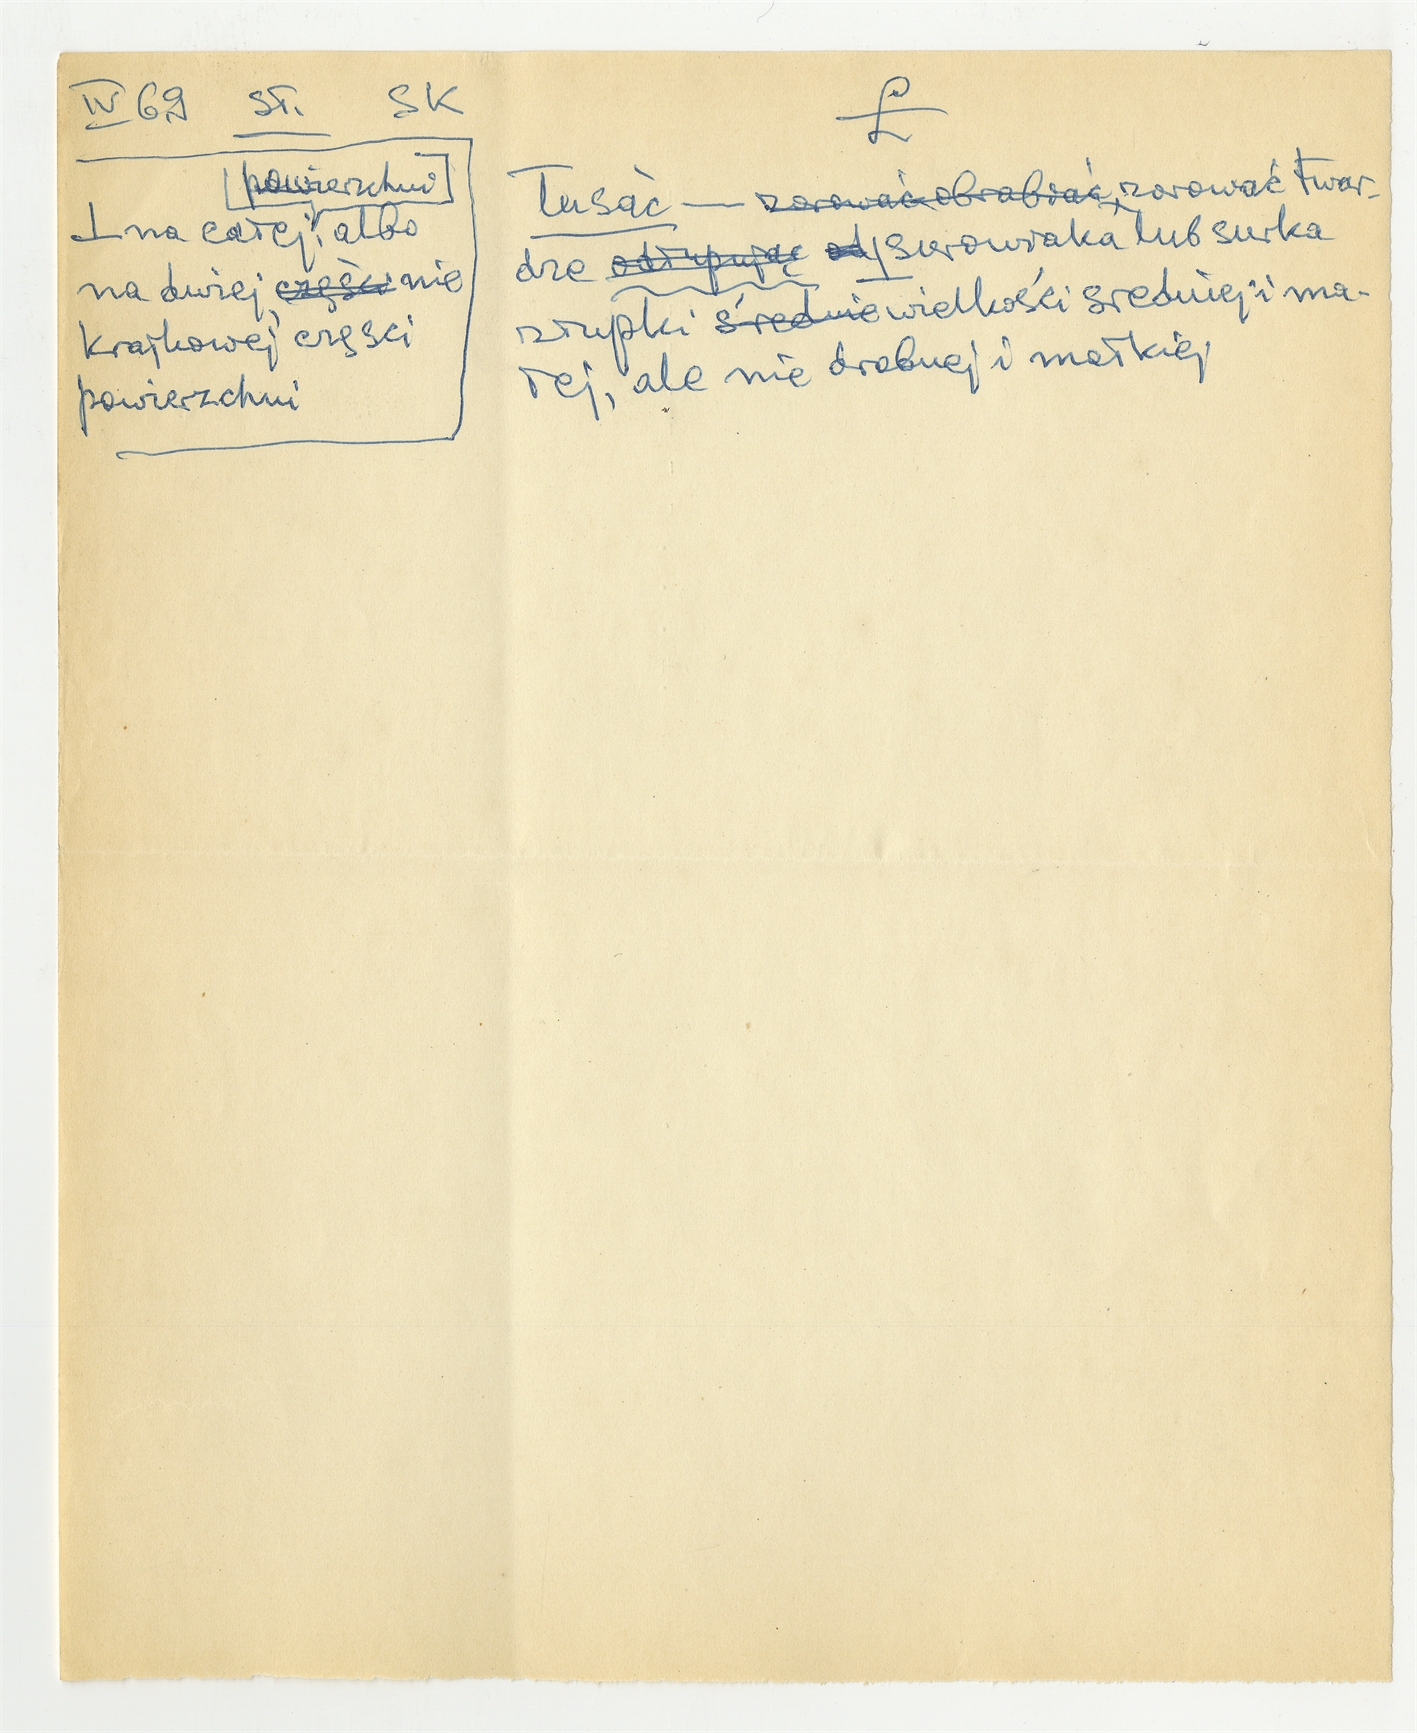 IV 69 st. SK
Ł
powierzchni
⊥ na całej, albo
na dużej, części nie
krajkowej części
powierzchni
Łusać — zorować obrabiać, zorować twar-
dze odłupując od surowiaka lub surka
złupki średnie wielkości średniej i ma-
łej, ale nie drobnej i małkiej